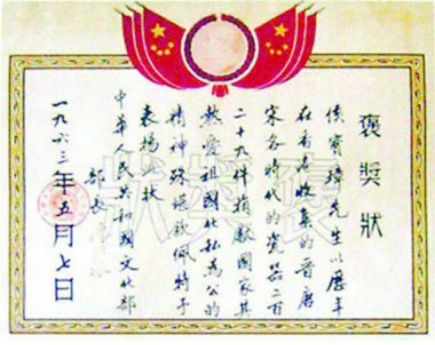 褒獎狀
侯寶璋先生以歷年
在香港收集的晉唐
宋各時代的瓷器二百
二十九件捐獻國家其
熱愛祖國化私為公的
精神殊堪欽佩特予
表揚此狀
中華人民共和國文化部
部長
一九六三年五月七日
褒獎狀